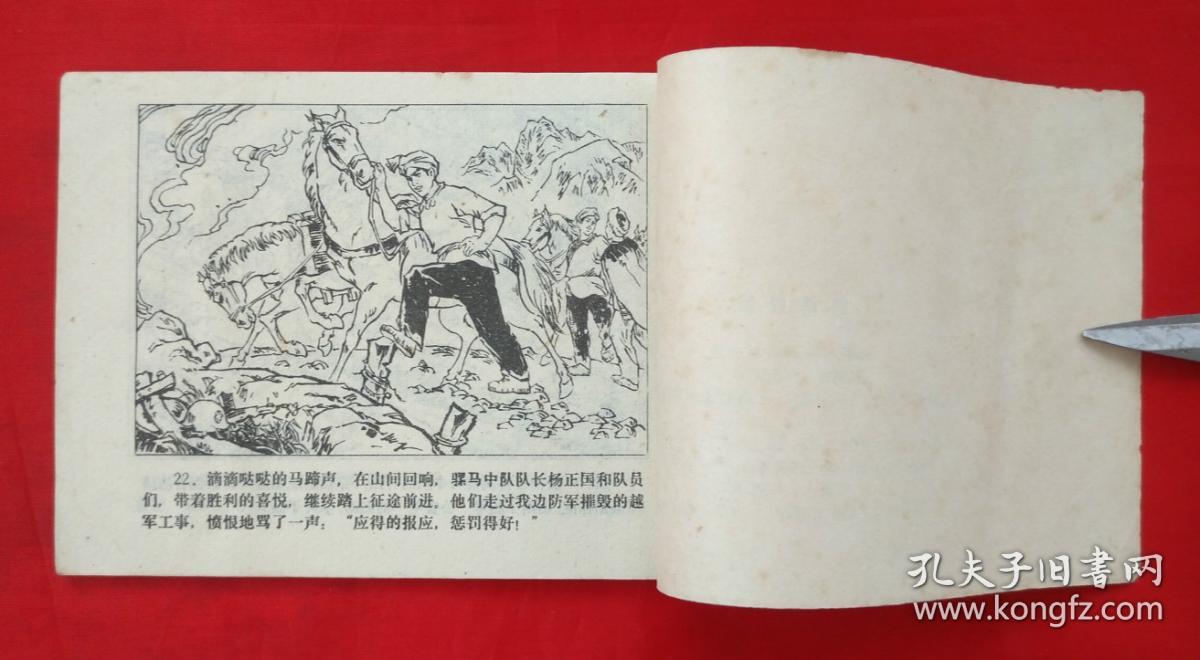 22. 滴滴哒哒的马蹄声，在山间回响，骡马中队队长杨正国和队员
们，带着胜利的喜悦，继续踏上征途前进。他们走过我边防军摧毁的越
军工事，愤恨地骂了一声：“应得的报应，惩罚得好！”
孔夫子旧書网
www.kongfz.com